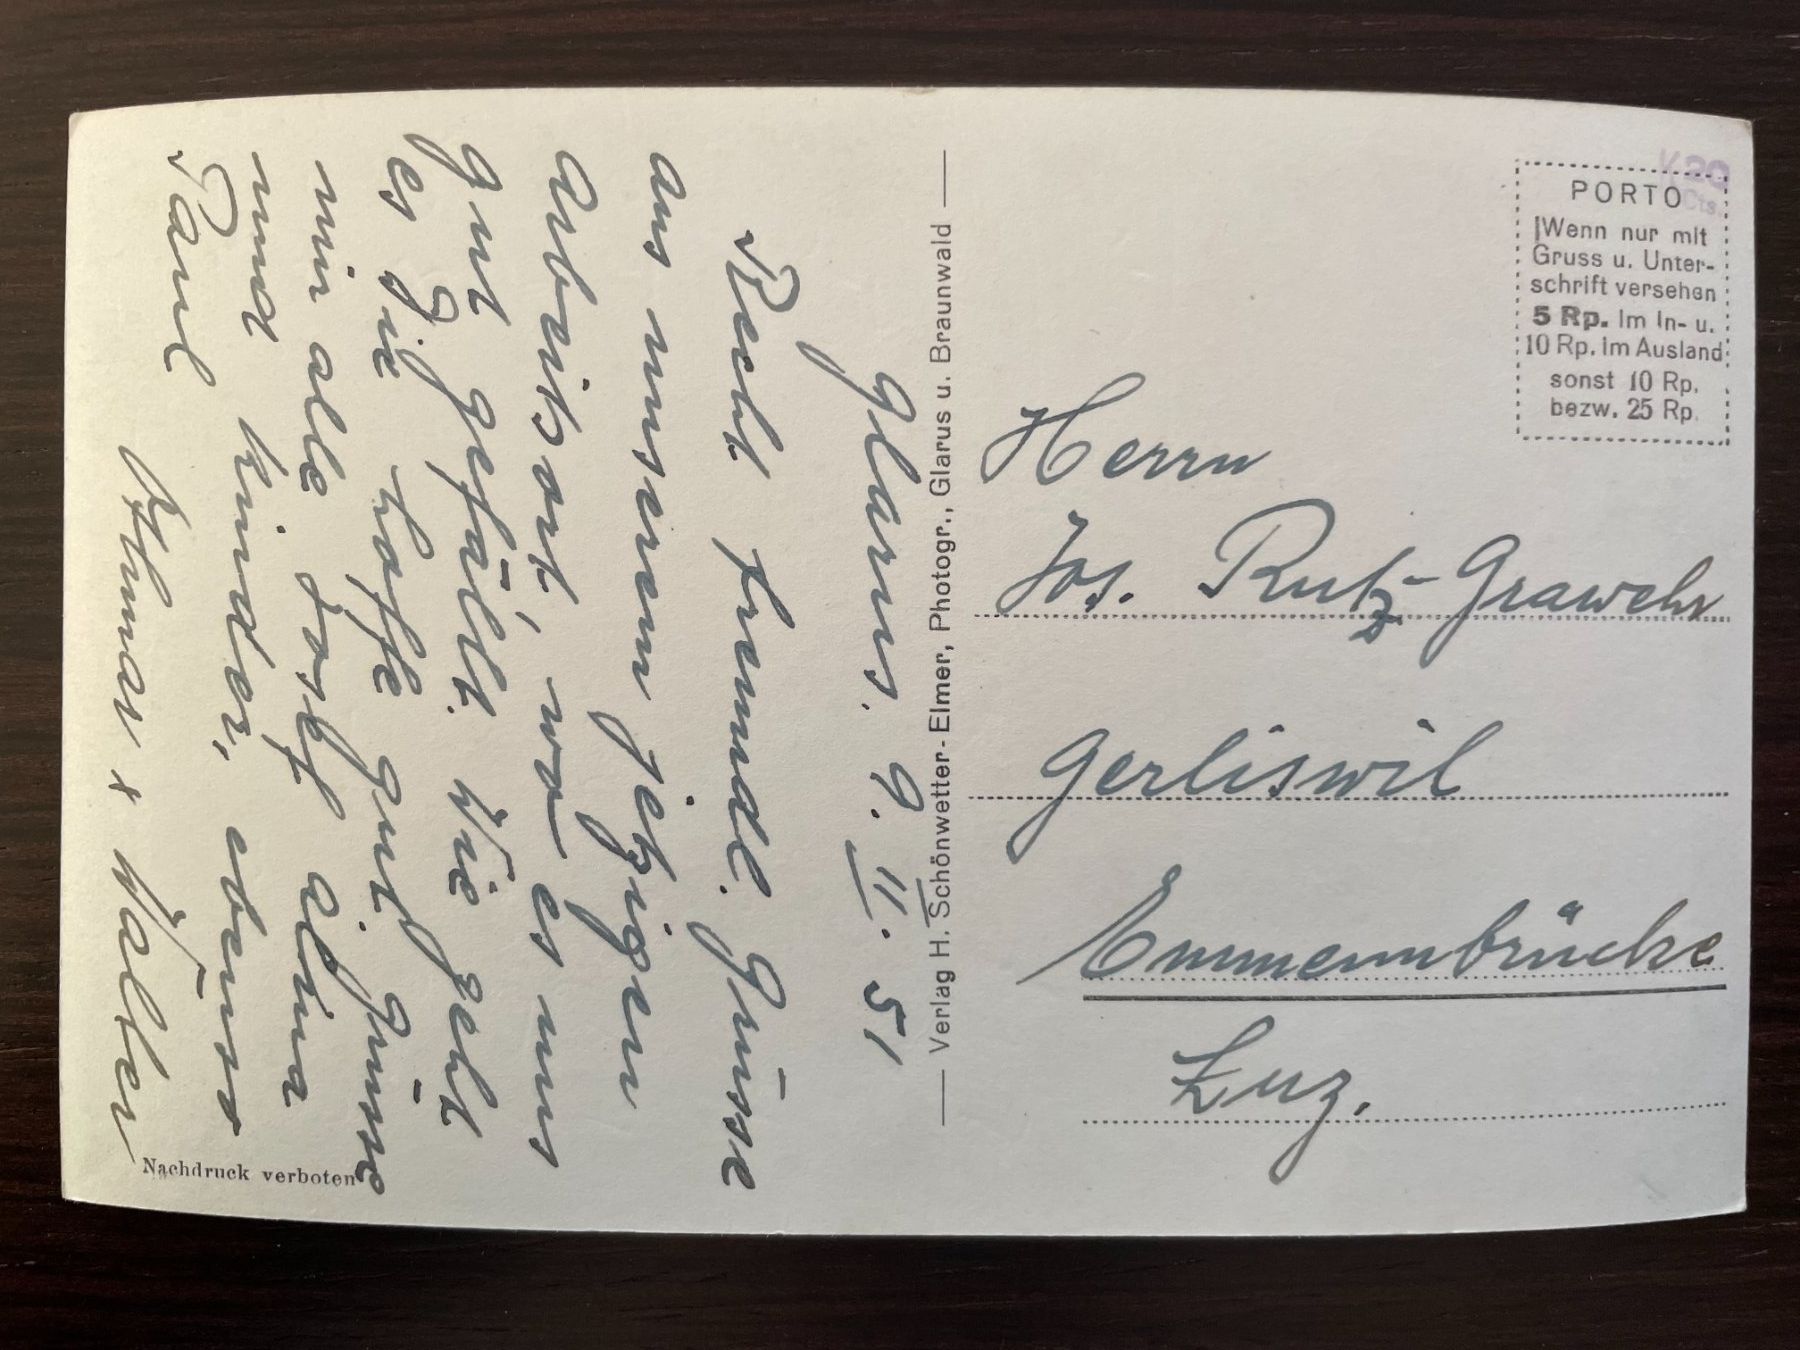 Glarus. 9. II. 51
Recht freundl. Grüsse
aus unserem jetzigen
Arbeitsort, wo es uns
gut gefällt. Wie geht
es Dir, hoffe gut, grüsse
mir alle Josef Alina
und Kinder, ebenso
Paul
Othmar + Walter
Nachdruck verboten
Verlag H. Schönwetter-Elmer, Photogr., Glarus u. Braunwald
20
Cts.
PORTO
Wenn nur mit
Gruss u. Unter-
schrift versehen
5 Rp. im In- u.
10 Rp. im Ausland
sonst 10 Rp.
bezw. 25 Rp.
Herrn
Jos. Rutz-Grawehr
Gerliswil
Emmenbrücke
Luz.